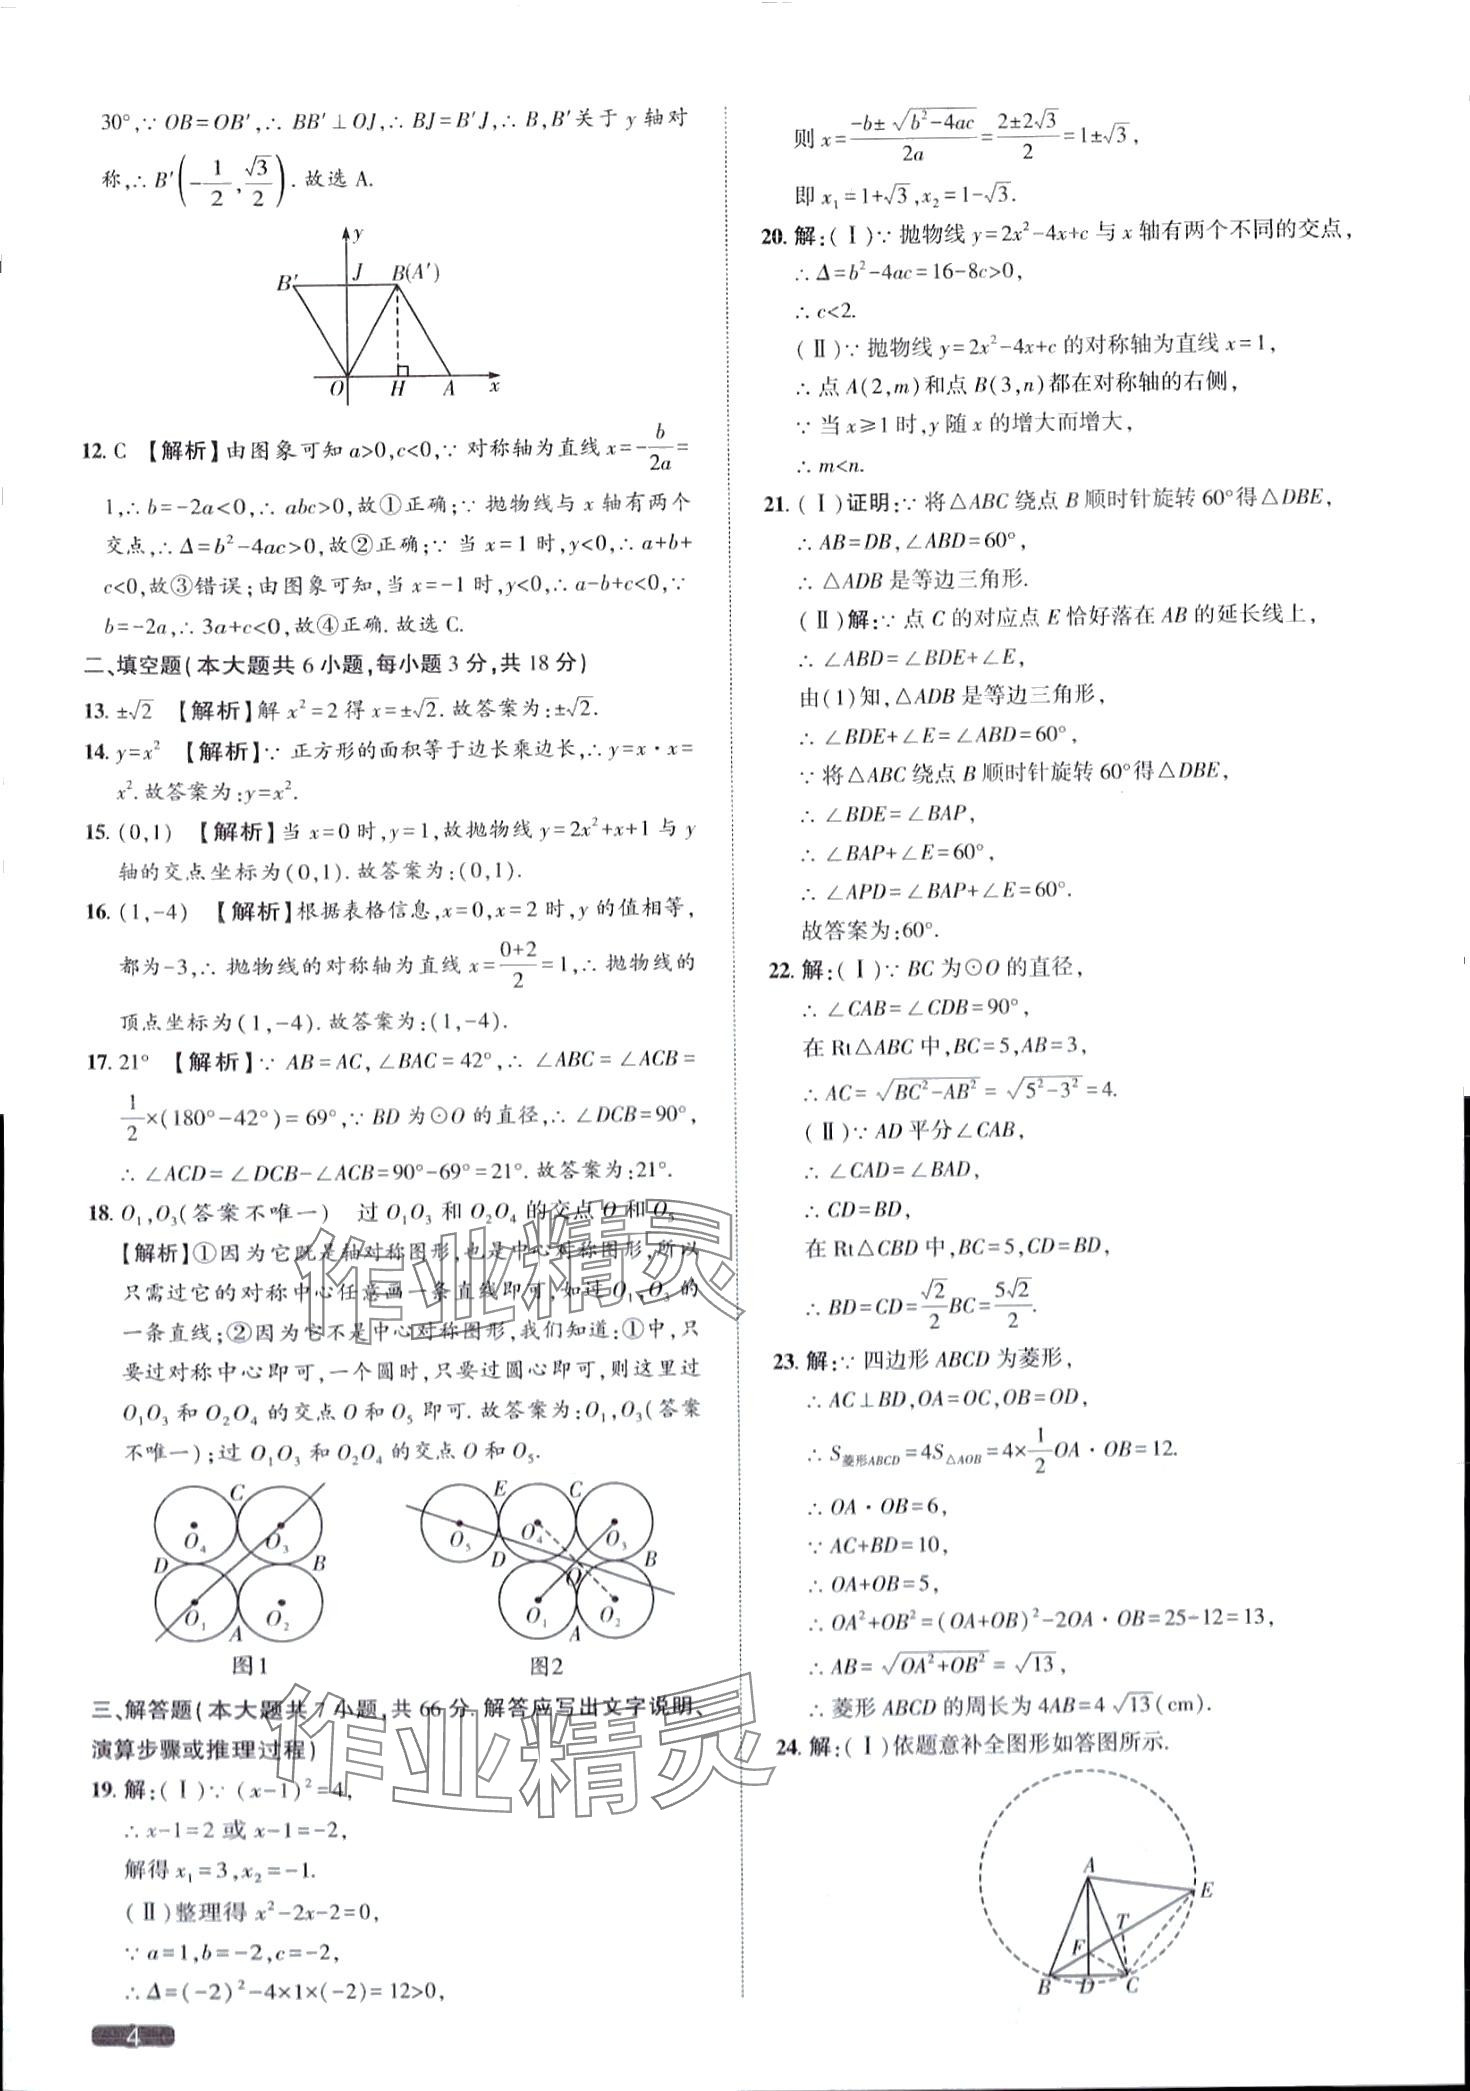 30°,∵ OB=OB′,∴ BB′⊥OJ,∴ BJ=B′J,∴ B,B′关于 y 轴对
称,∴ B′(-1/2,√3/2). 故选 A.
y
B′ J B(A′)
O H A x
12. C 【解析】由图象可知 a>0,c<0,∵ 对称轴为直线 x=-b/2a=
1,∴ b=-2a<0,∴ abc>0,故①正确;∵ 抛物线与 x 轴有两个
交点,∴ Δ=b²-4ac>0,故②正确;∵ 当 x=1 时,y<0,∴ a+b+
c<0,故③错误;由图象可知,当 x=-1 时,y<0,∴ a-b+c<0,∵
b=-2a,∴ 3a+c<0,故④正确. 故选 C.
二、填空题(本大题共 6 小题,每小题 3 分,共 18 分)
13. ±√2 【解析】解 x²=2 得 x=±√2. 故答案为:±√2.
14. y=x² 【解析】∵ 正方形的面积等于边长乘边长,∴ y=x·x=
x². 故答案为:y=x².
15. (0,1) 【解析】当 x=0 时,y=1,故抛物线 y=2x²+x+1 与 y
轴的交点坐标为(0,1). 故答案为:(0,1).
16. (1,-4) 【解析】根据表格信息,x=0,x=2 时,y 的值相等,
都为-3,∴ 抛物线的对称轴为直线 x=(0+2)/2=1,∴ 抛物线的
顶点坐标为(1,-4). 故答案为:(1,-4).
17. 21° 【解析】∵ AB=AC,∠BAC=42°,∴ ∠ABC=∠ACB=
1/2×(180°-42°)=69°,∵ BD 为⊙O 的直径,∴ ∠DCB=90°,
∴ ∠ACD=∠DCB-∠ACB=90°-69°=21°. 故答案为:21°.
18. O₁,O₃(答案不唯一) 过 O₁O₃ 和 O₂O₄ 的交点 O 和 O₅
【解析】①因为它既是轴对称图形,也是中心对称图形,所以
只需过它的对称中心任意画一条直线即可,如过 O₁、O₃ 的
一条直线;②因为它不是中心对称图形,我们知道:①中,只
要过对称中心即可,一个圆时,只要过圆心即可,则这里过
O₁O₃ 和 O₂O₄ 的交点 O 和 O₅ 即可. 故答案为:O₁,O₃(答案
不唯一);过 O₁O₃ 和 O₂O₄ 的交点 O 和 O₅.
C O₄ O₃ D B O₁ O₂ A
图1
E C O₅ O₄ O₃ D B O O₁ O₂ A
图2
三、解答题(本大题共 7 小题,共 66 分. 解答应写出文字说明、
演算步骤或推理过程)
19. 解:(Ⅰ)∵ (x-1)²=4,
∴ x-1=2 或 x-1=-2,
解得 x₁=3,x₂=-1.
(Ⅱ)整理得 x²-2x-2=0,
∵ a=1,b=-2,c=-2,
∴ Δ=(-2)²-4×1×(-2)=12>0,
4
则 x=(-b±√(b²-4ac))/2a=(2±2√3)/2=1±√3,
即 x₁=1+√3,x₂=1-√3.
20. 解:(Ⅰ)∵ 抛物线 y=2x²-4x+c 与 x 轴有两个不同的交点,
∴ Δ=b²-4ac=16-8c>0,
∴ c<2.
(Ⅱ)∵ 抛物线 y=2x²-4x+c 的对称轴为直线 x=1,
∴ 点 A(2,m)和点 B(3,n)都在对称轴的右侧,
∵ 当 x≥1 时,y 随 x 的增大而增大,
∴ m<n.
21. (Ⅰ)证明:∵ 将△ABC 绕点 B 顺时针旋转 60°得△DBE,
∴ AB=DB,∠ABD=60°,
∴ △ADB 是等边三角形.
(Ⅱ)解:∵ 点 C 的对应点 E 恰好落在 AB 的延长线上,
∴ ∠ABD=∠BDE+∠E,
由(1)知,△ADB 是等边三角形,
∴ ∠BDE+∠E=∠ABD=60°,
∵ 将△ABC 绕点 B 顺时针旋转 60°得△DBE,
∴ ∠BDE=∠BAP,
∴ ∠BAP+∠E=60°,
∴ ∠APD=∠BAP+∠E=60°.
故答案为:60°.
22. 解:(Ⅰ)∵ BC 为⊙O 的直径,
∴ ∠CAB=∠CDB=90°,
在 Rt△ABC 中,BC=5,AB=3,
∴ AC=√(BC²-AB²)=√(5²-3²)=4.
(Ⅱ)∵ AD 平分∠CAB,
∴ ∠CAD=∠BAD,
∴ CD=BD,
在 Rt△CBD 中,BC=5,CD=BD,
∴ BD=CD=√2/2 BC=5√2/2.
23. 解:∵ 四边形 ABCD 为菱形,
∴ AC⊥BD,OA=OC,OB=OD,
∴ S菱形ABCD=4S△AOB=4×1/2 OA·OB=12.
∴ OA·OB=6,
∵ AC+BD=10,
∴ OA+OB=5,
∴ OA²+OB²=(OA+OB)²-2OA·OB=25-12=13,
∴ AB=√(OA²+OB²)=√13,
∴ 菱形 ABCD 的周长为 4AB=4√13(cm).
24. 解:(Ⅰ)依题意补全图形如答图所示.
A E T F B D C
作业精灵
作业精灵